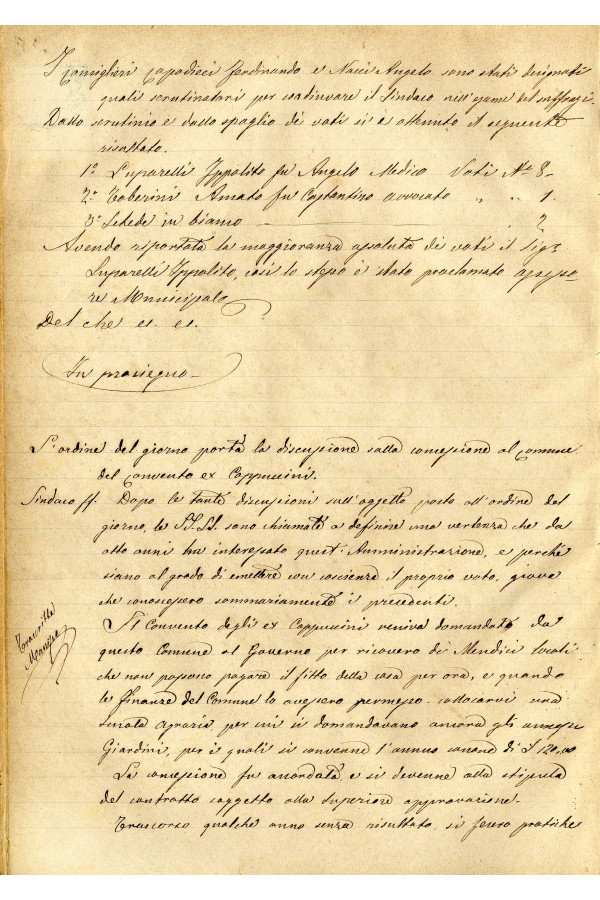 I Consiglieri Capodieci Ferdinando e Nacci Angelo sono stati designati
quali scrutinatori per coadiuvare il Sindaco nell'esame dei suffragi.
Dallo scrutinio e dallo spoglio dei voti si è ottenuto il seguente
risultato.
1º Luparelli Ippolito fu Angelo Medico Voti Nº 8-
2º Taberini Amato fu Costantino avvocato " " 1.
3º Schede in bianco " 2
Avendo riportata la maggioranza assoluta dei voti il Sigr
Luparelli Ippolito, così lo stesso è stato proclamato assesso-
re Municipale
Del che es. es.
In prosieguo-
L'ordine del giorno porta la discussione sulla concessione al Comune
del Convento ex Cappuccini.
Sindaco ff. Dopo le tante discussioni sull'oggetto posto all'ordine del
giorno, le SS.LL. sono chiamate a definire una vertenza che da
otto anni ha interessato quest'Amministrazione, e perché
siano al grado di emettere con coscienza il proprio voto, giova
che conoscessero sommariamente i precedenti.
Trascritta
Il Convento degli ex Cappuccini veniva domandato da
questo Comune al Governo per ricovero di Mendici locali
che non possono pagare il fitto della casa per ora, e quando
le finanze del Comune lo avessero permesso collocarvi una
scuola agraria, per cui si domandavano ancora gli annessi
Giardini, per i quali si convenne l'annuo canone di £ 120,00
La concessione fu accordata e si devenne alla stipula
del contratto soggetto alla Superiore approvazione.
Trascorso qualche anno senza risultato, si fecero pratiche